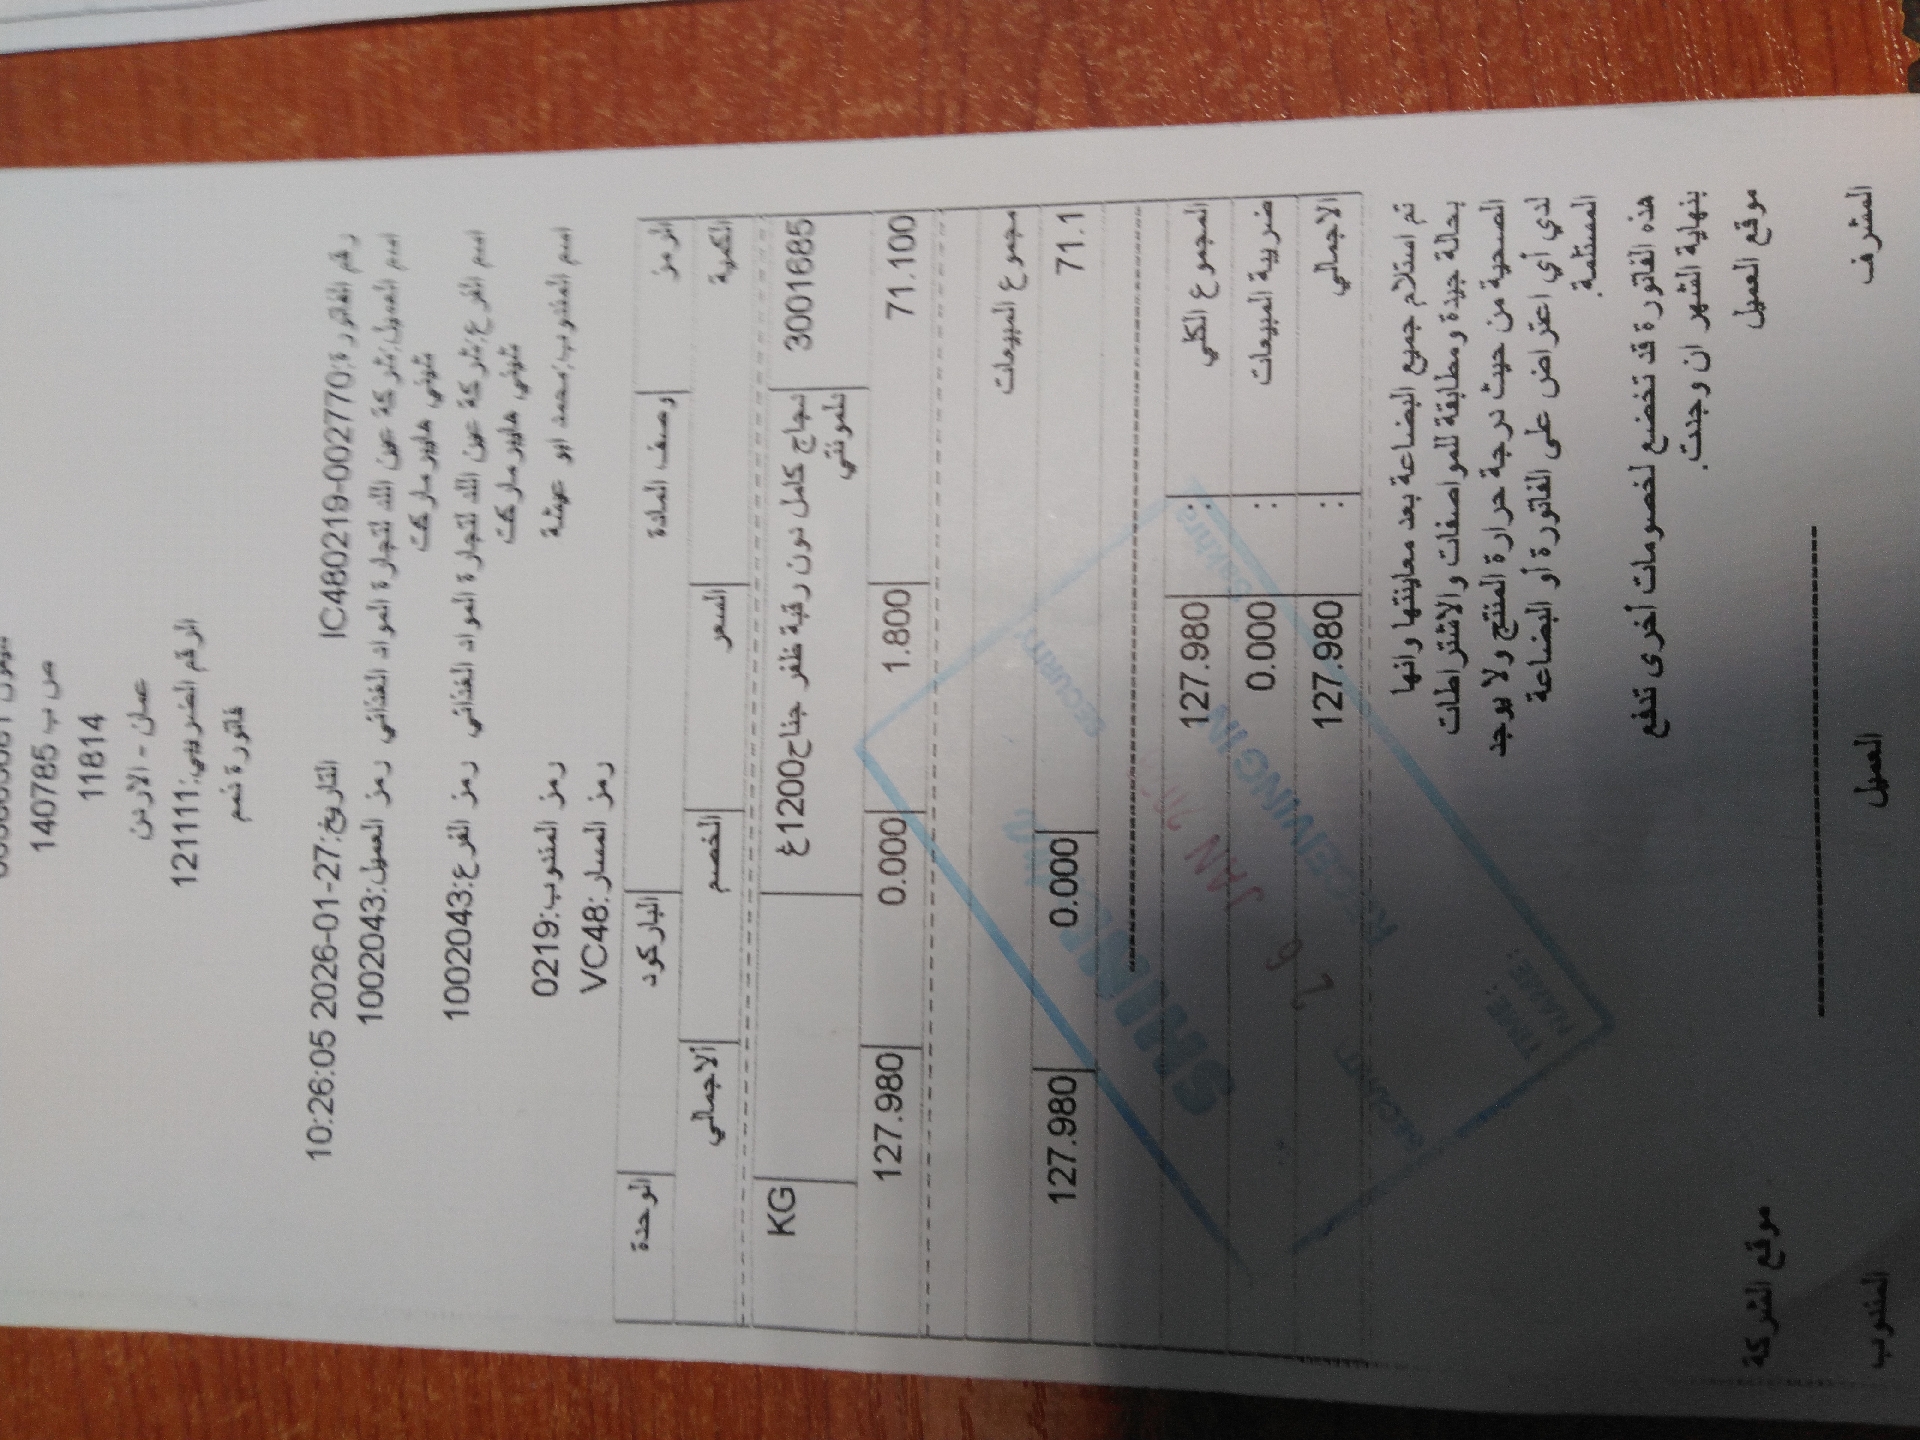 ص ب 140785
11814
عمان - الاردن
الرقم الضريبي:1211111
فاتورة ذمم
رقم الفاتورة:IC480219-002770 التاريخ:27-01-2026 10:26:05
اسم العميل:شركة عون الله لتجارة المواد الغذائي رمز العميل:1002043
شيني هايبر ماركت
اسم الفرع:شركة عون الله لتجارة المواد الغذائي رمز الفرع:1002043
شيني هايبر ماركت
اسم المندوب:محمد ابو عيشة رمز المندوب:0219
رمز المسار:VC48
الرمز وصف المادة الباركود الوحدة
الكمية السعر الخصم الاجمالي
3001685 دجاج كامل دون رقبة ظفر جناح1200غ KG
تلمونتي
71.100 1.800 0.000 127.980
مجموع المبيعات
71.1 0.000 127.980
المجموع الكلي : 127.980
ضريبة المبيعات : 0.000
الاجمالي : 127.980
تم استلام جميع البضاعة بعد معاينتها وانها
بحالة جيدة ومطابقة للمواصفات والاشتراطات
الصحية من حيث درجة حرارة المنتج ولا يوجد
لدي أي اعتراض على الفاتورة أو البضاعة
المستلمة.
هذه الفاتورة قد تخضع لخصومات أخرى تدفع
بنهاية الشهر ان وجدت.
موقع العميل موقع الشركة
المشرف العميل المندوب
RECEIVING IN
SECURITY
JAN
TIME:
NAME:
SECURITY